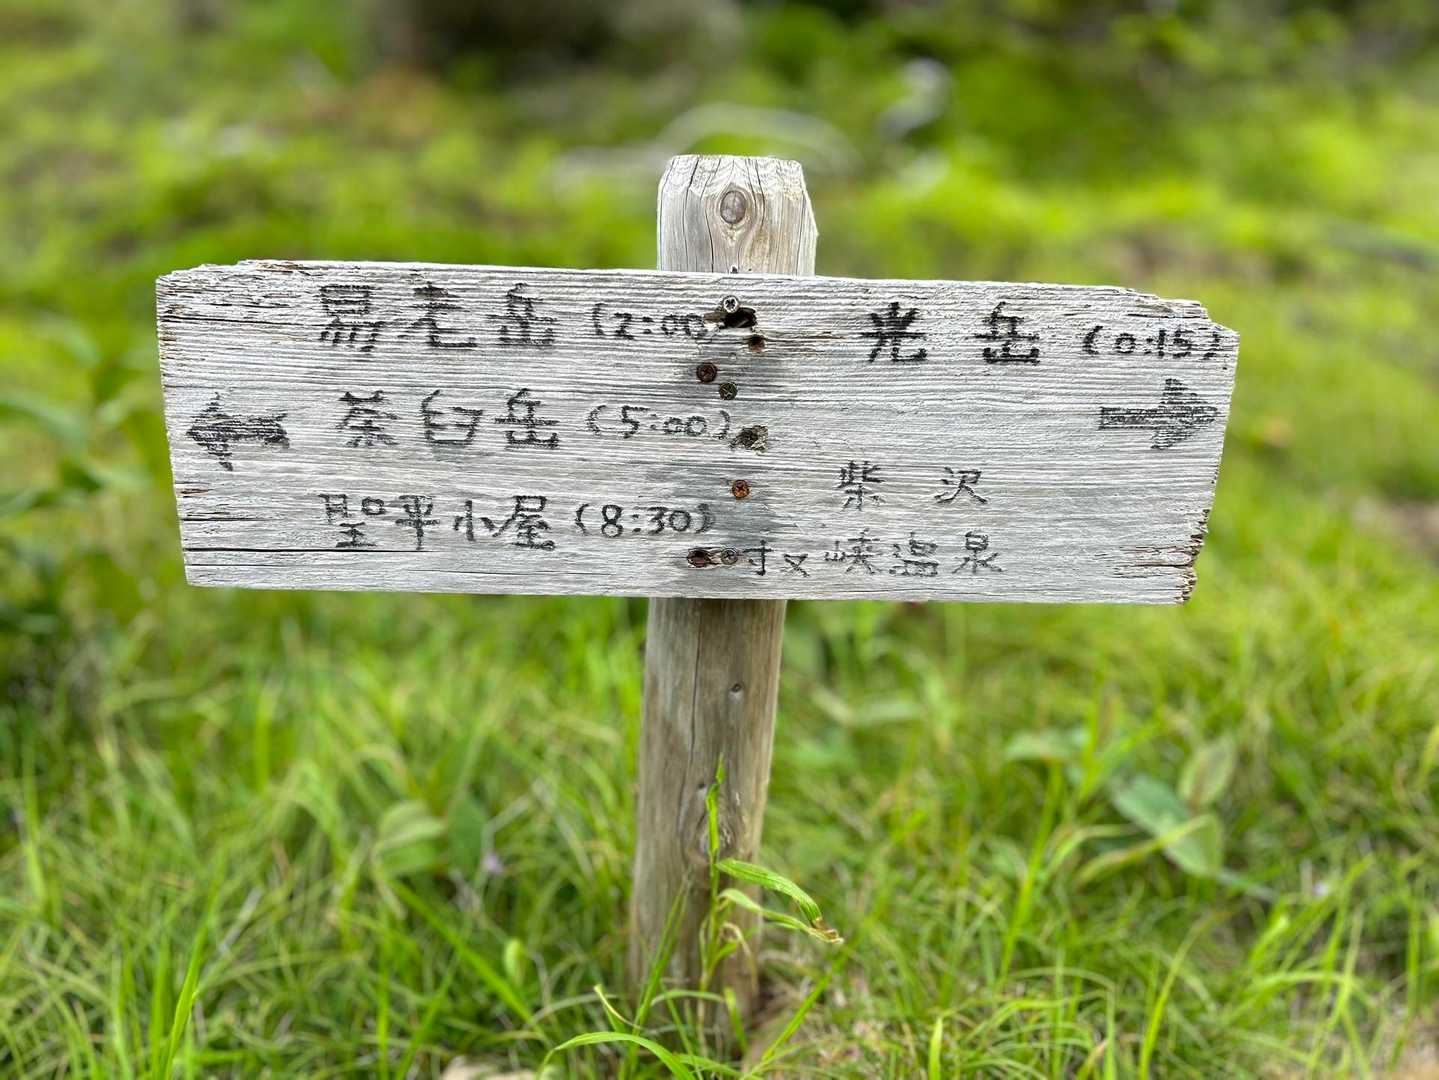 易老岳 (2:00)
茶臼岳 (5:00)
聖平小屋 (8:30)
光岳 (0:15)
柴沢
寸又峡温泉